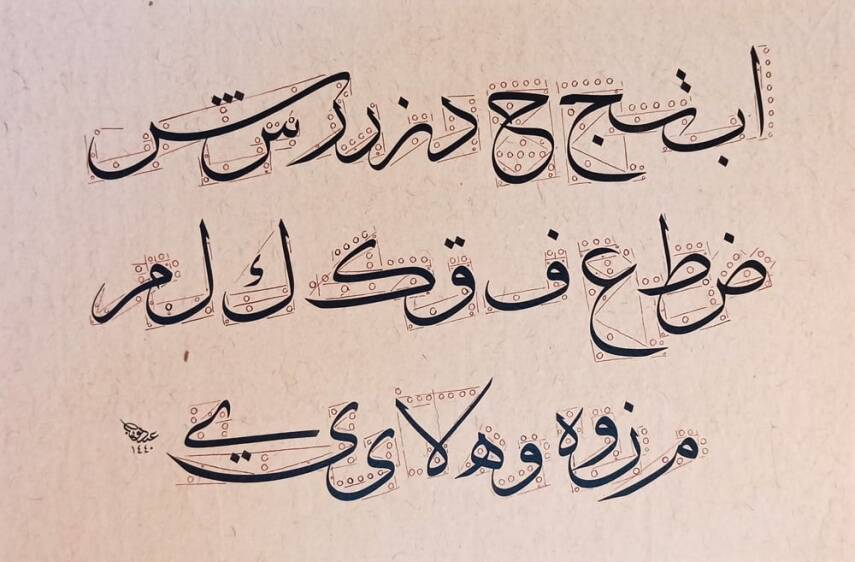 ا ب ت ج ح د ز ر ر س ش
ض ط ع ف ق ك ك ل م
م ن و ه و ه لا ى ي
١٤٤٠